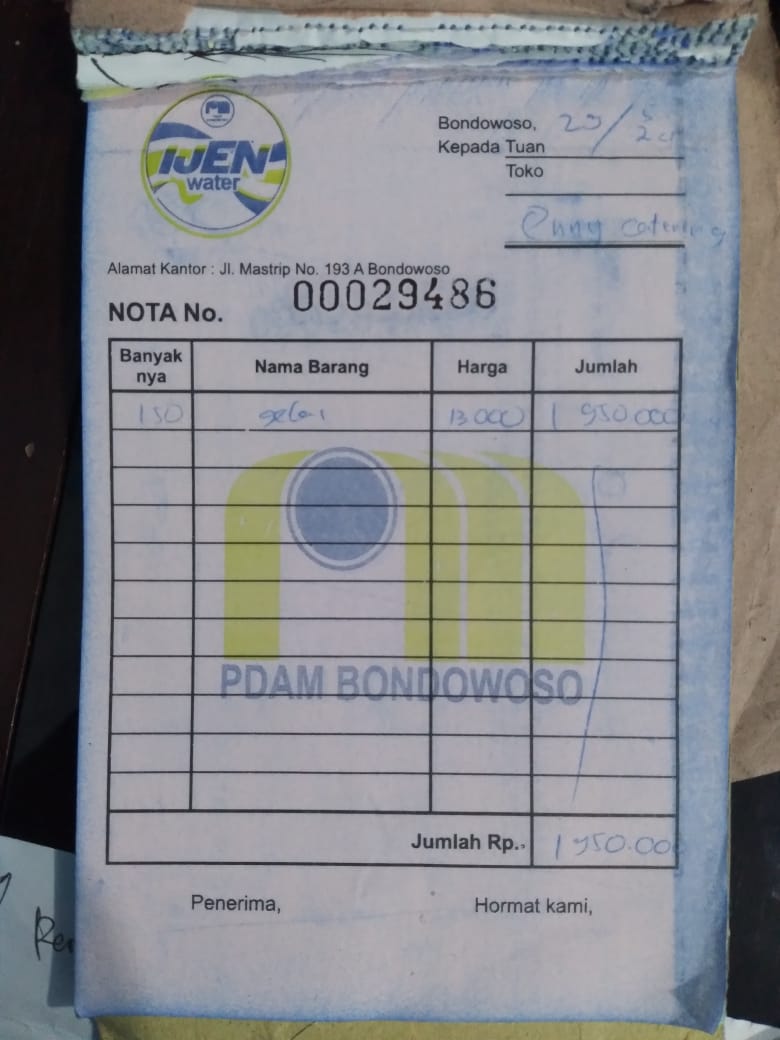 IJEN
water
Bondowoso, 29/5
Kepada Tuan
Toko
enny catering
Alamat Kantor : Jl. Mastrip No. 193 A Bondowoso
NOTA No. 00029486
Banyak nya Nama Barang Harga Jumlah
150 gelas 13000 1 950.000
PDAM BONDOWOSO
Jumlah Rp., 1 950.00
Penerima, Hormat kami,